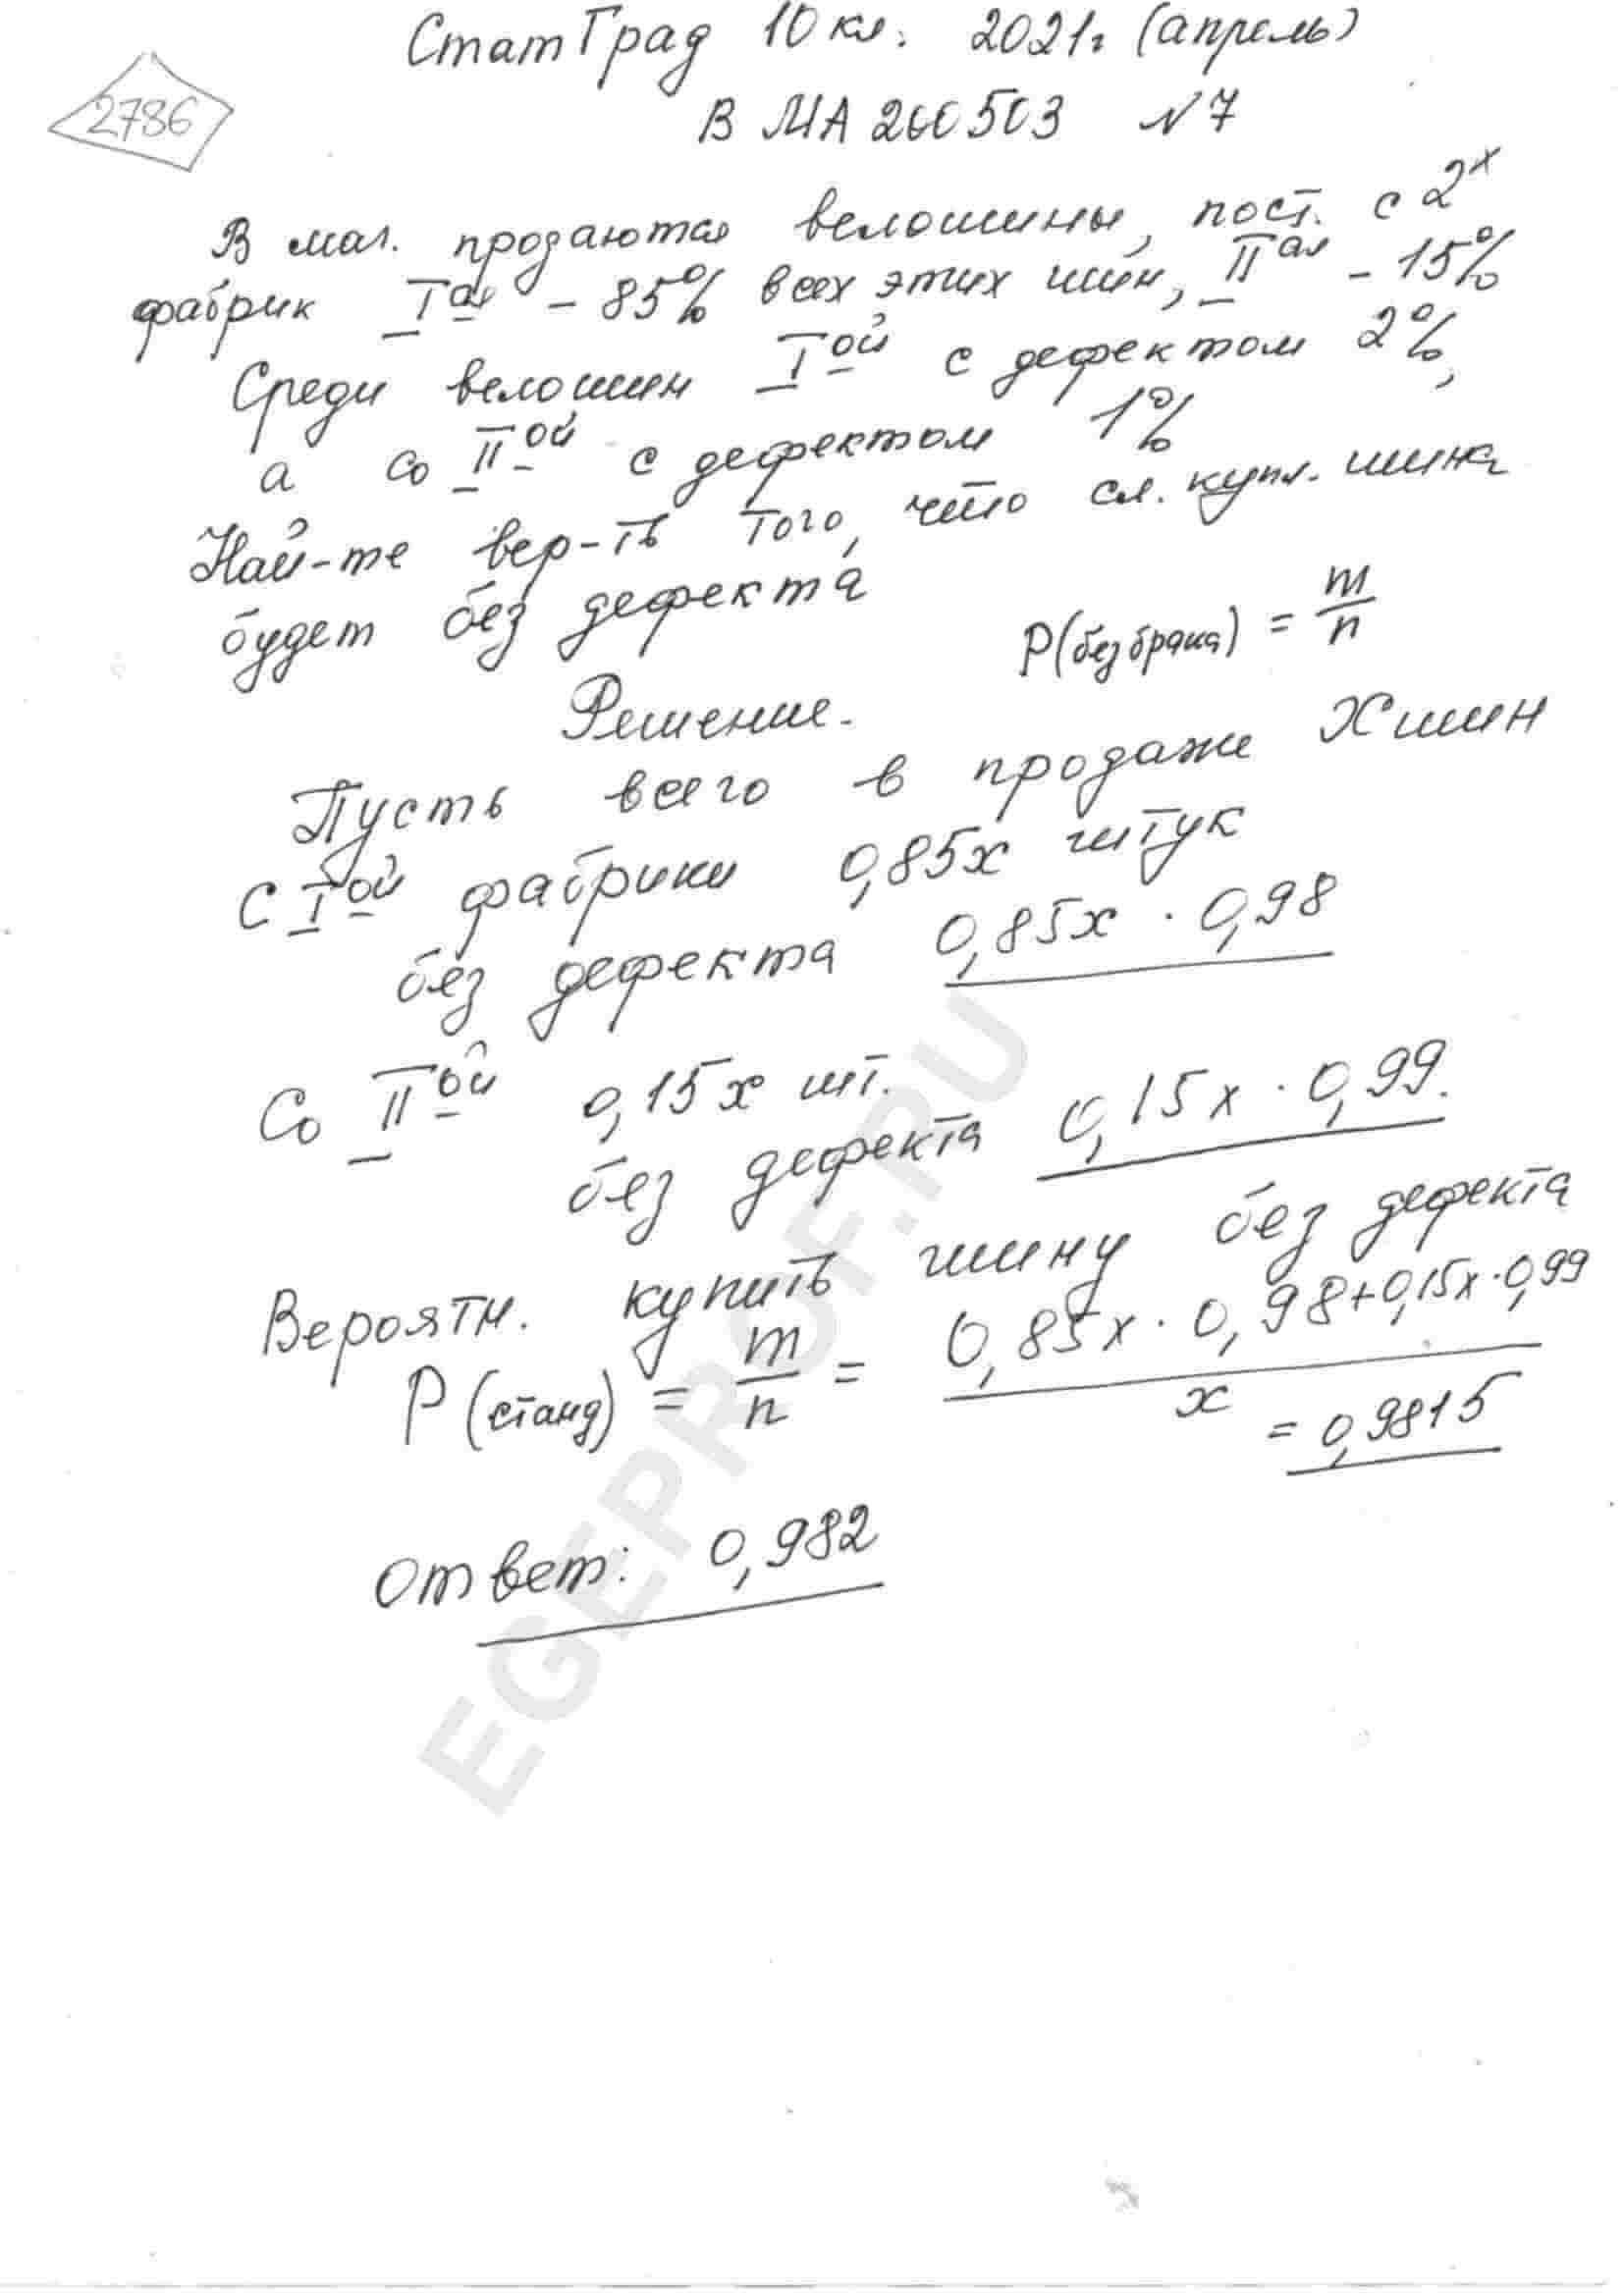 СтатГрад 10 кл. 2021г (апрель)
2786
В МА 2600503 №7
В маг. продаются велошины, пост. с 2х
фабрик Iая - 85% всех этих шин, IIая - 15%
Среди велошин Iой с дефектом 2%,
а со IIой с дефектом 1%
Най-те вер-ть того, что сл. купл. шина
будет без дефекта
P(без брака) = m/n
Решение.
Пусть всего в продаже X шин
С Iой фабрики 0,85x штук
без дефекта 0,85x · 0,98
Со IIой 0,15x шт.
без дефекта 0,15x · 0,99.
Вероятн. купить шину без дефекта
P(станд) = m/n = (0,85x · 0,98 + 0,15x · 0,99)/x
= 0,9815
Ответ: 0,982
EGEPROF.RU